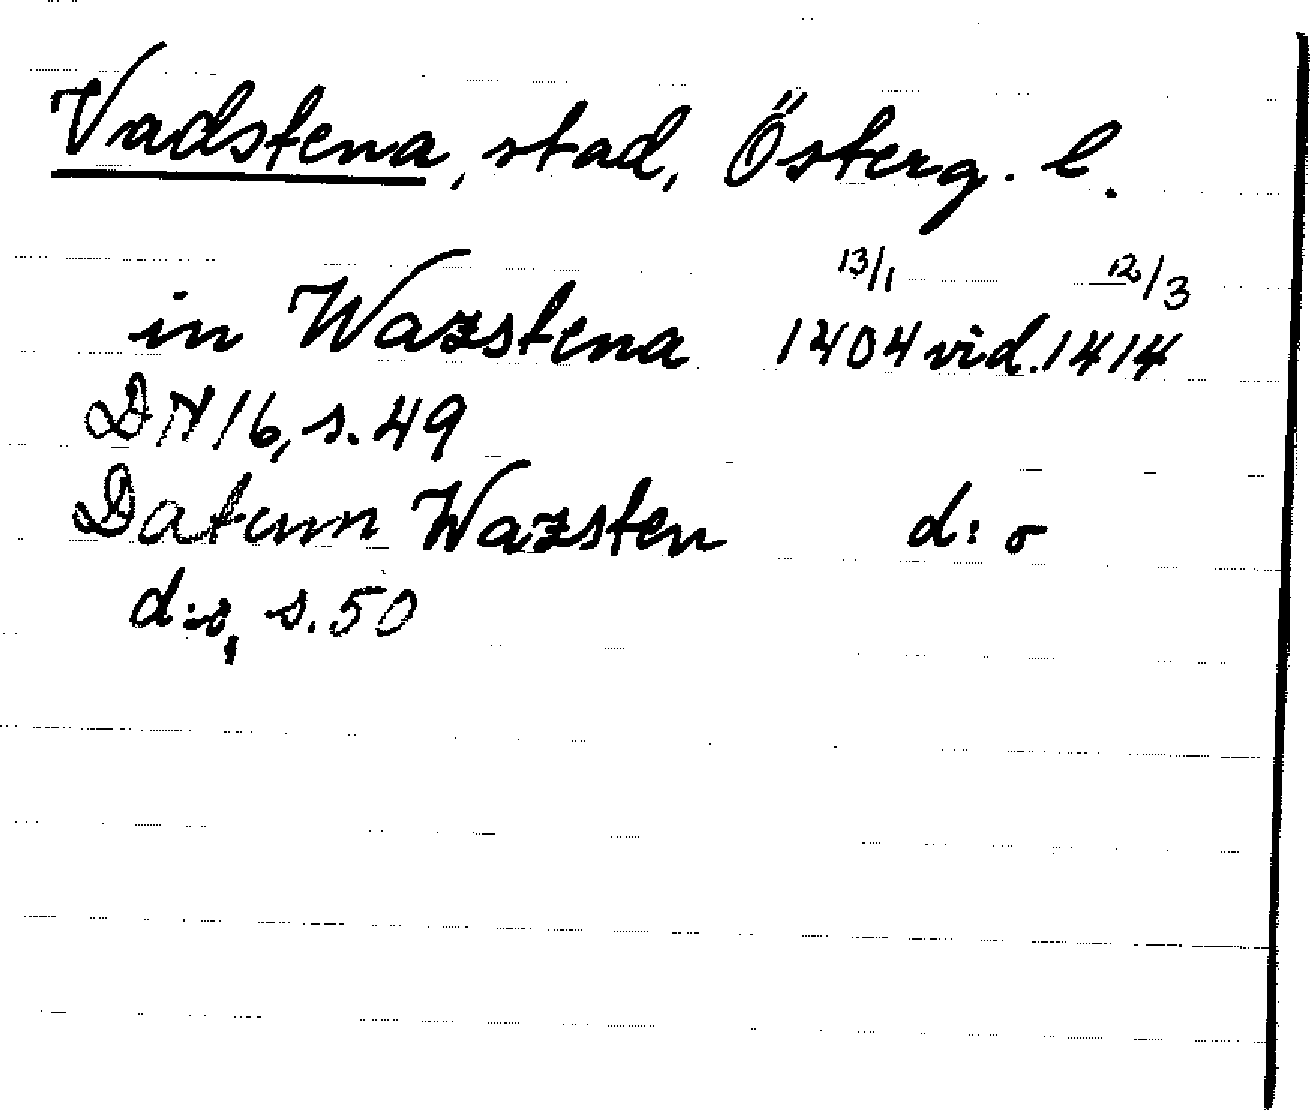 Vadstena, stad, Österg. l.
in Wazstena 13/1 1404 vid. 12/3 1414
DN 16, s. 49
Datum Wazsten d:o
d:o, s. 50